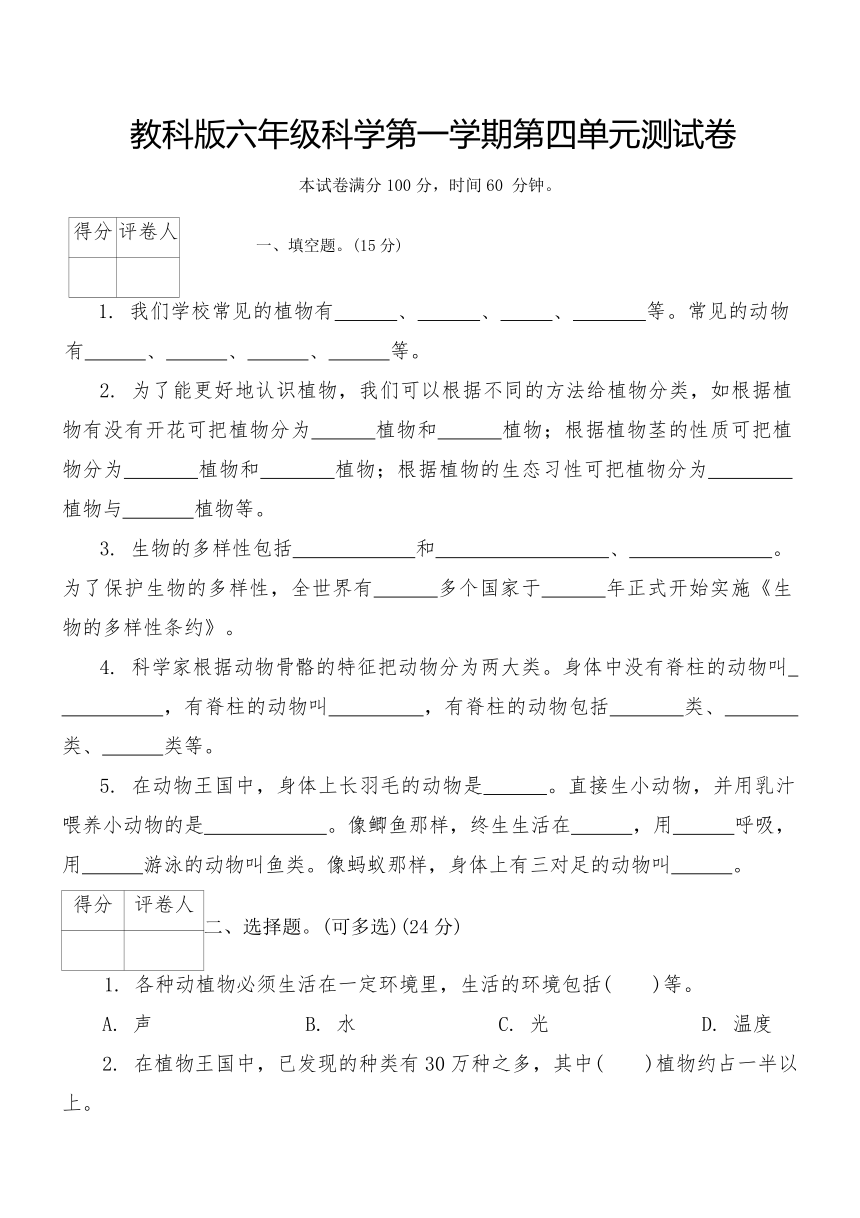 教科版六年级科学第一学期第四单元测试卷
本试卷满分100分，时间60 分钟。
得分 评卷人
一、填空题。(15分)
1. 我们学校常见的植物有______、______、_____、_______等。常见的动物
有______、______、______、______等。
2. 为了能更好地认识植物，我们可以根据不同的方法给植物分类，如根据植
物有没有开花可把植物分为______植物和______植物；根据植物茎的性质可把植
物分为_______植物和_______植物；根据植物的生态习性可把植物分为________
植物与_______植物等。
3. 生物的多样性包括____________和_________________、______________。
为了保护生物的多样性，全世界有______多个国家于______年正式开始实施《生
物的多样性条约》。
4. 科学家根据动物骨骼的特征把动物分为两大类。身体中没有脊柱的动物叫_
__________，有脊柱的动物叫_________，有脊柱的动物包括_______类、_______
类、______类等。
5. 在动物王国中，身体上长羽毛的动物是______。直接生小动物，并用乳汁
喂养小动物的是____________。像鲫鱼那样，终生生活在______，用______呼吸，
用______游泳的动物叫鱼类。像蚂蚁那样，身体上有三对足的动物叫______。
得分 评卷人
二、选择题。(可多选)(24分)
1. 各种动植物必须生活在一定环境里，生活的环境包括(    )等。
A. 声 B. 水 C. 光 D. 温度
2. 在植物王国中，已发现的种类有30万种之多，其中(    )植物约占一半以
上。